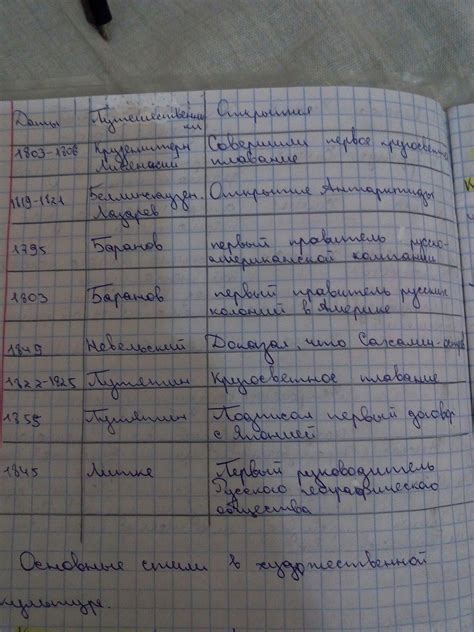 Даты Путешественни- Открытия
ки
1803-1806 Крузенштерн Совершили первое кругосветн
Лисянский плавание
1819-1821 Беллинсгаузен. Открытие Антарктиды
Лазарев
1795 Баранов первый правитель русско-
американской компании
1803 Баранов первый правитель русских
колоний в Америке
1849 Невельский Доказал, что Сахалин-остров
1822-1825 Путятин Кругосветное плавание
1855 Путятин Подписал первый договор
с Японией
1845 Литке Первый руководитель
Русского географического
общества
Основные стили в художественной
культуре.